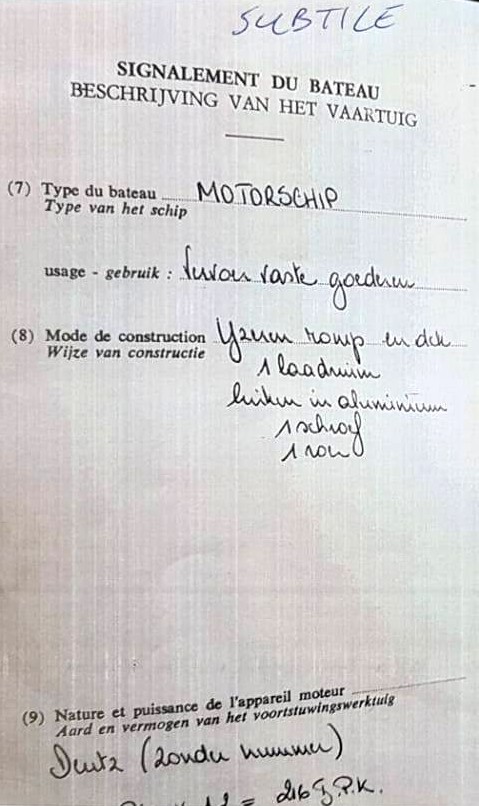 SUBTILE
SIGNALEMENT DU BATEAU
BESCHRIJVING VAN HET VAARTUIG
(7) Type du bateau MOTORSCHIP
Type van het schip
usage - gebruik : vaste goederen
(8) Mode de construction Yzeren romp en dek
Wijze van constructie
1 laadruim
luiken in aluminium
1 schroef
1 roer
(9) Nature et puissance de l'appareil moteur
Aard en vermogen van het voortstuwingswerktuig
Deutz (zonder nummer)
= P.K.